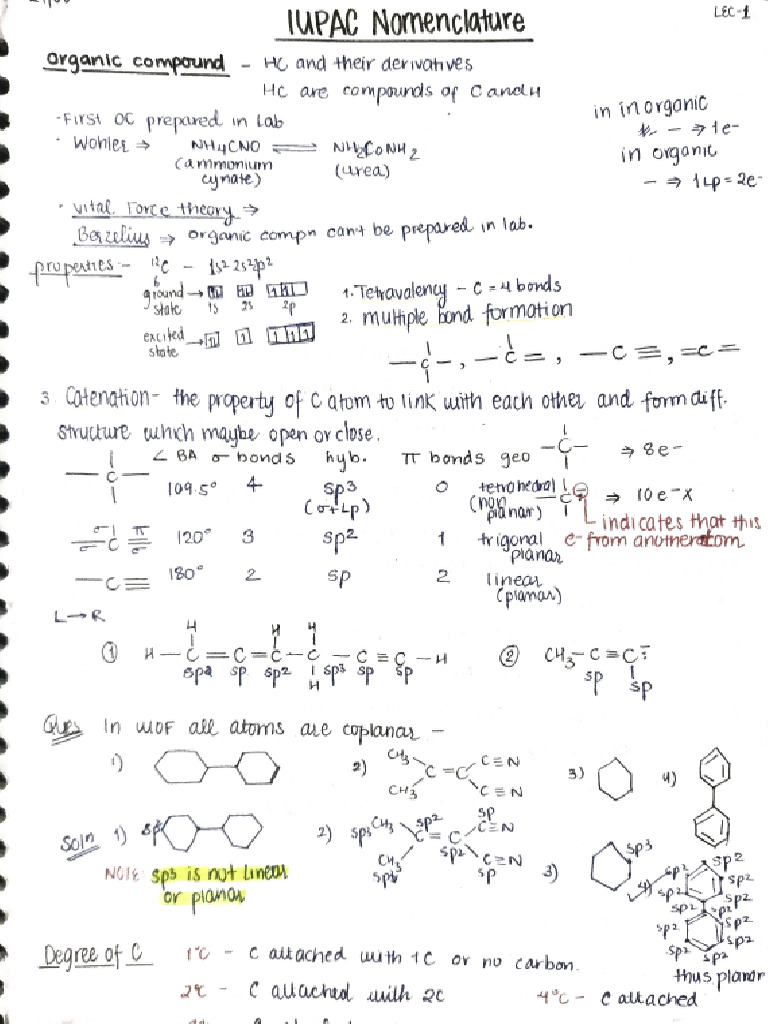 LEC-1
IUPAC Nomenclature
organic compound - HC and their derivatives
HC are compounds of C and H
-First OC prepared in lab
· Wohler ⇒ NH4CNO ⇌ NH2CONH2
(ammonium cynate) (urea)
in inorganic
- ⇒ 1e-
in organic
- ⇒ 1Lp = 2e-
· Vital Force theory ⇒
Berzelius ⇒ organic compn can't be prepared in lab.
properties:- 12 6 C - 1s2 2s2 2p2
ground state → 1s 2s 2p
excited state →
1. Tetravalency - C = 4 bonds
2. multiple bond formation
-C-, -C=, -C≡, =C=
3 Catenation- the property of C atom to link with each other and form diff.
structure which maybe open or close.
∠ BA σ bonds hyb. π bonds geo
-C- 109.5° 4 sp3 (σ+Lp) 0 tetrahedral (non planar)
σ σ C π 120° 3 sp2 1 trigonal planar
-C≡ 180° 2 sp 2 linear (planar)
-C- ⇒ 8e-
-C- ⊖ ⇒ 10e- x
indicates that this
e- from another atom
L→R
① H-C=C=C-C-C≡C-H
H H H H
sp2 sp sp2 sp3 sp sp
② CH3-C≡C:-
sp sp
Ques In WOF all atoms are coplanar -
1) 2) CH3 CH3 C=C C≡N C≡N 3) 4)
Soln 1) sp3 2) sp3 CH3 sp2 C=C sp C≡N
CH3 sp3 sp2 C≡N sp
3) sp3
4) sp2 sp2 sp2 sp2 sp2 sp2 sp2 sp2 sp2 sp2 sp2 sp2
NOTE: sp3 is not linear
or planar
thus planar
Degree of C 1°C - C attached with 1C or no carbon.
2°C - C attached with 2C 4°C - C attached